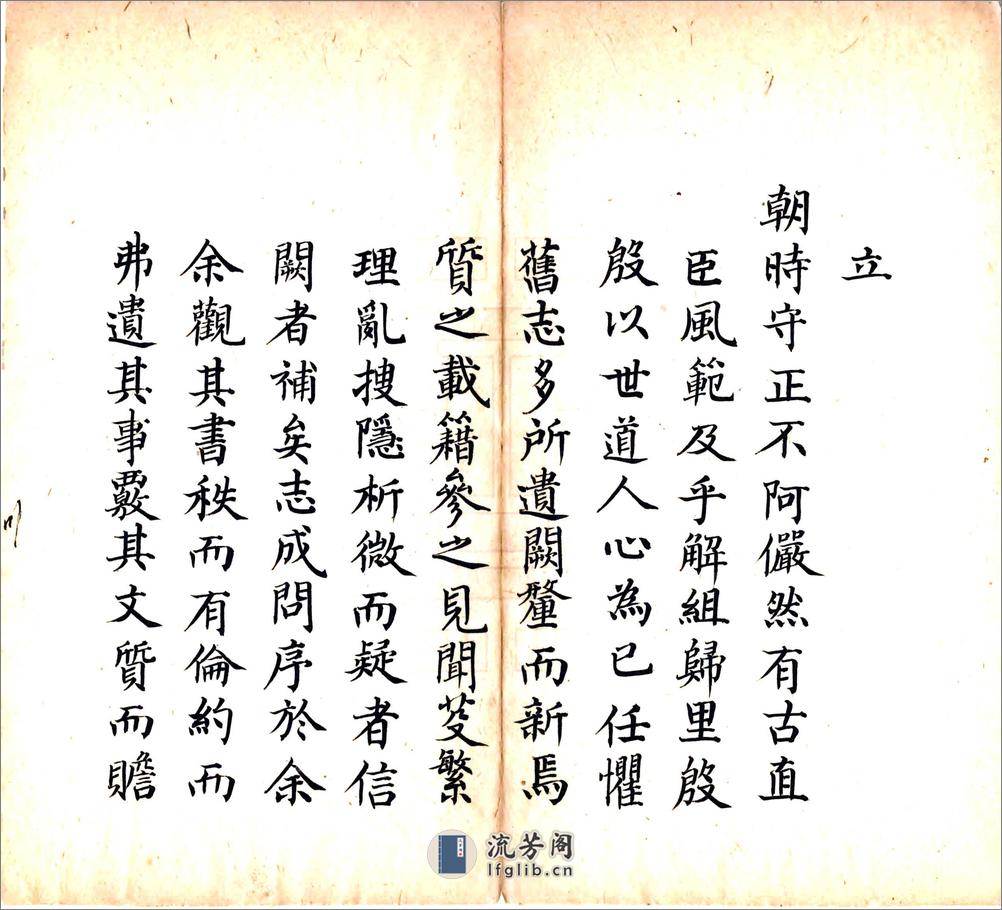 立
朝時守正不阿儼然有古直
臣風範及乎解組歸里殷
殷以世道人心為已任懼
舊志多所遺闕釐而新焉
質之載籍參之見聞芟繁
理亂搜隱析微而疑者信
闕者補矣志成問序於余
余觀其書秩而有倫約而
弗遺其事覈其文質而贍
流芳阁
lfglib.cn